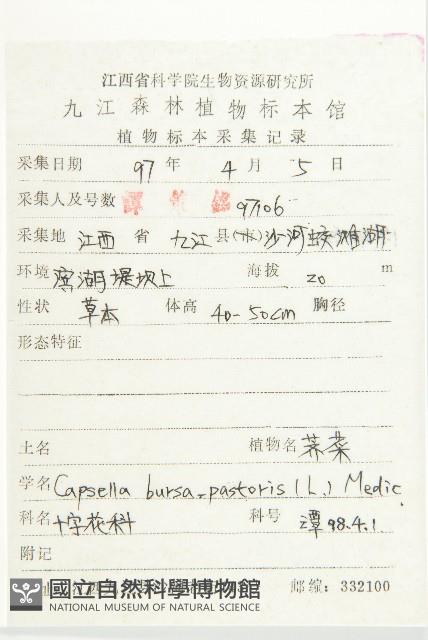 江西省科学院生物资源研究所
九江森林植物标本馆
植物标本采集记录
采集日期 97 年 4 月 5 日
采集人及号数 97106
采集地 江西 省 九江 县(市)沙河蛟滩湖
环境 滨湖堤坝上 海拔 20 m
性状 草本 体高 40-50cm 胸径
形态特征
土名 植物名 荠菜
学名 Capsella bursa-pastoris (L.) Medic.
科名 十字花科 科号 潭 98.4.1
附记
邮编：332100
國立自然科學博物館
NATIONAL MUSEUM OF NATURAL SCIENCE